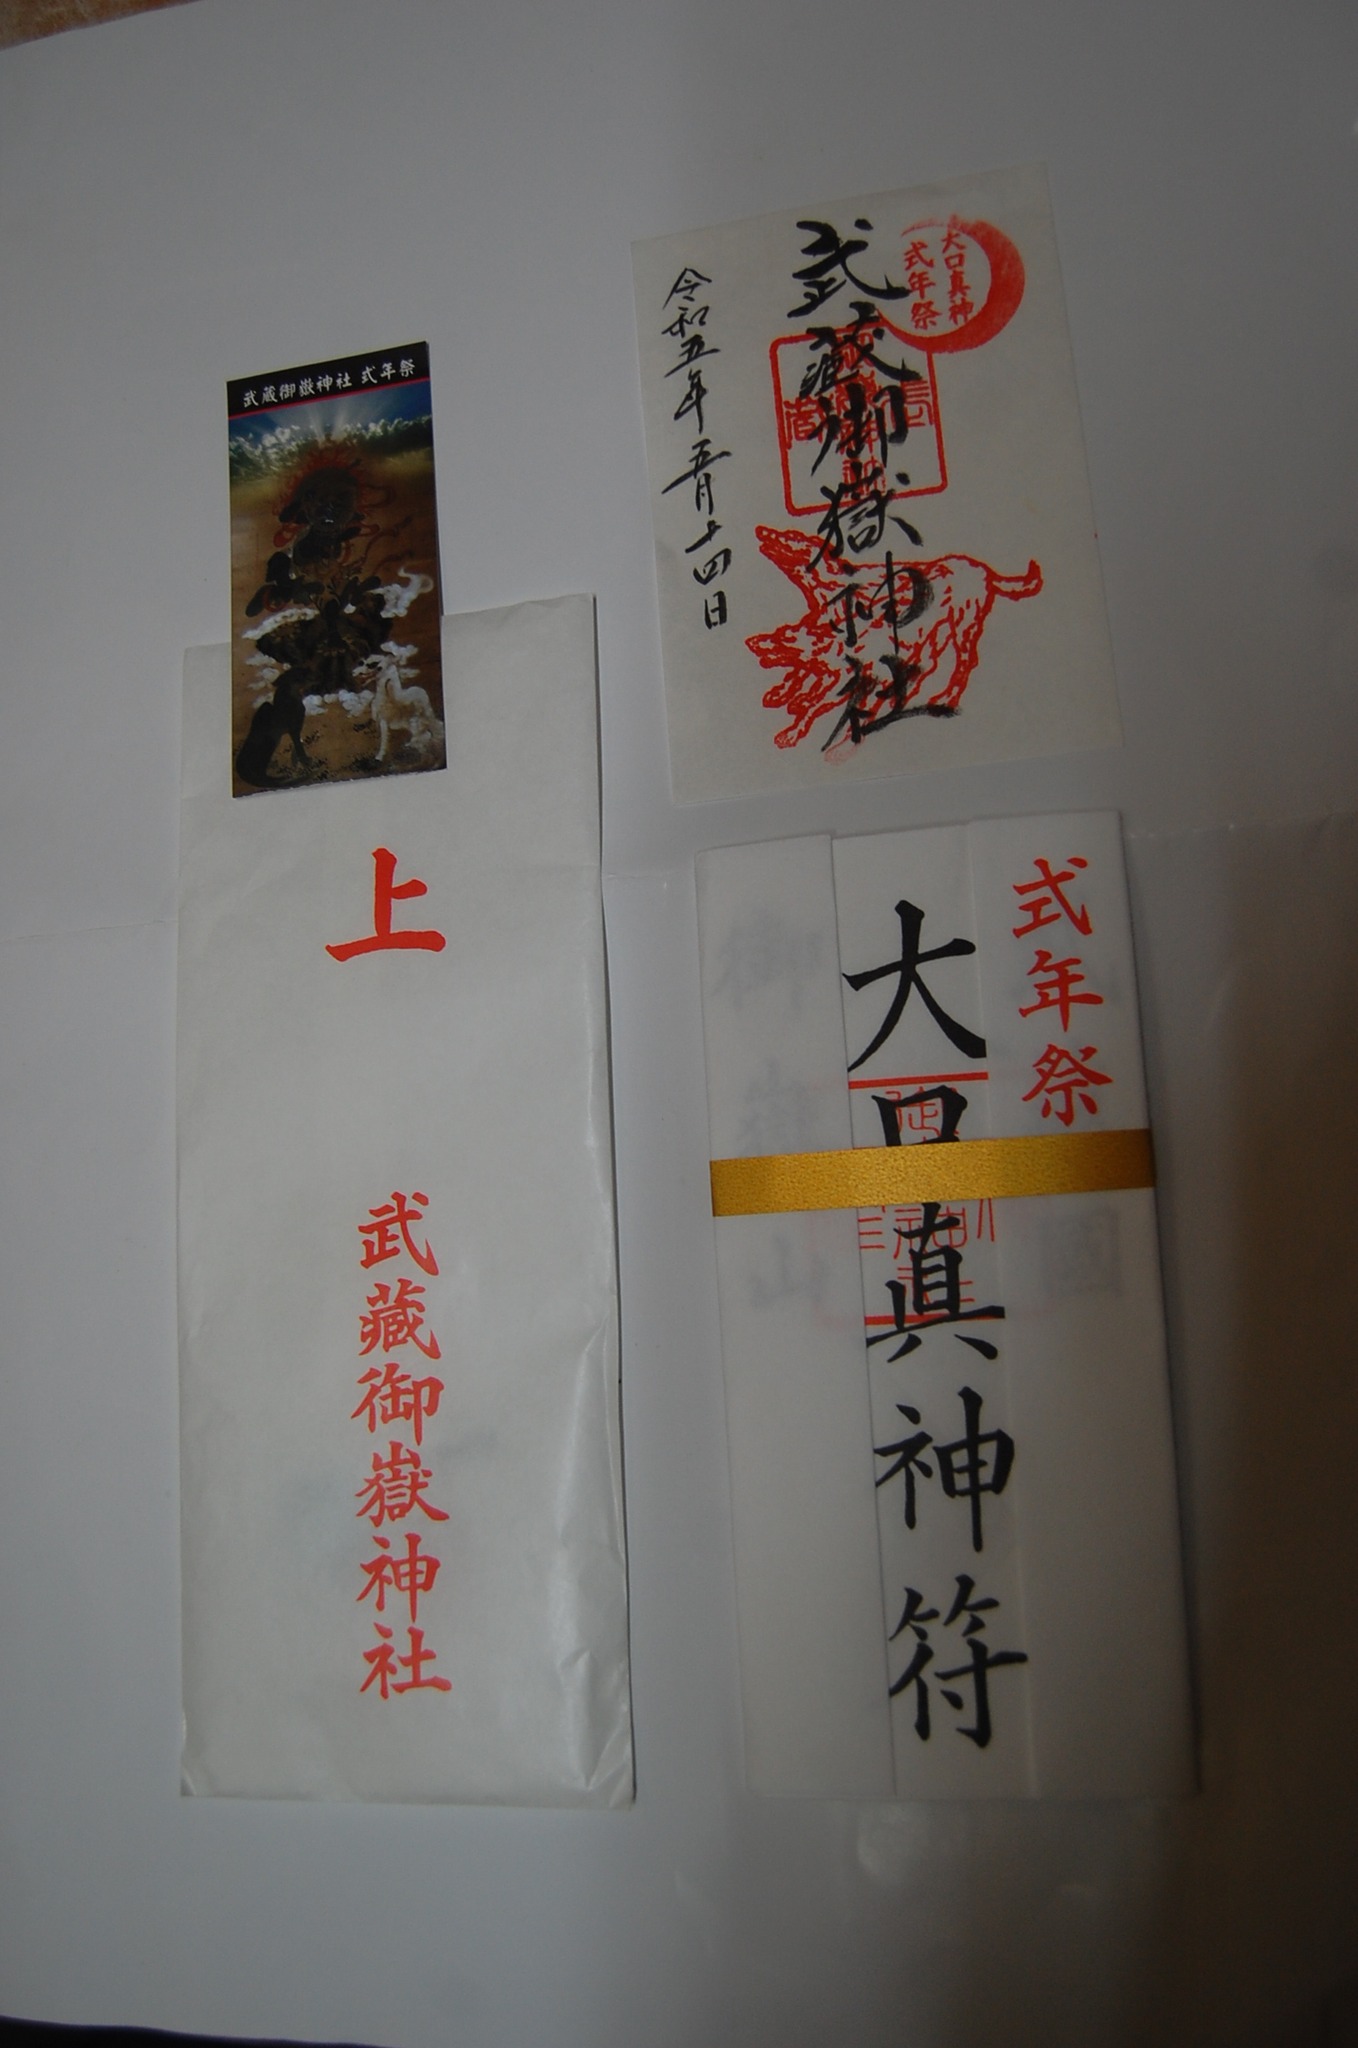 武蔵御嶽神社 式年祭
大口真神
式年祭
武蔵御嶽神社
令和五年五月十四日
上
武蔵御嶽神社
式年祭
大口真神符